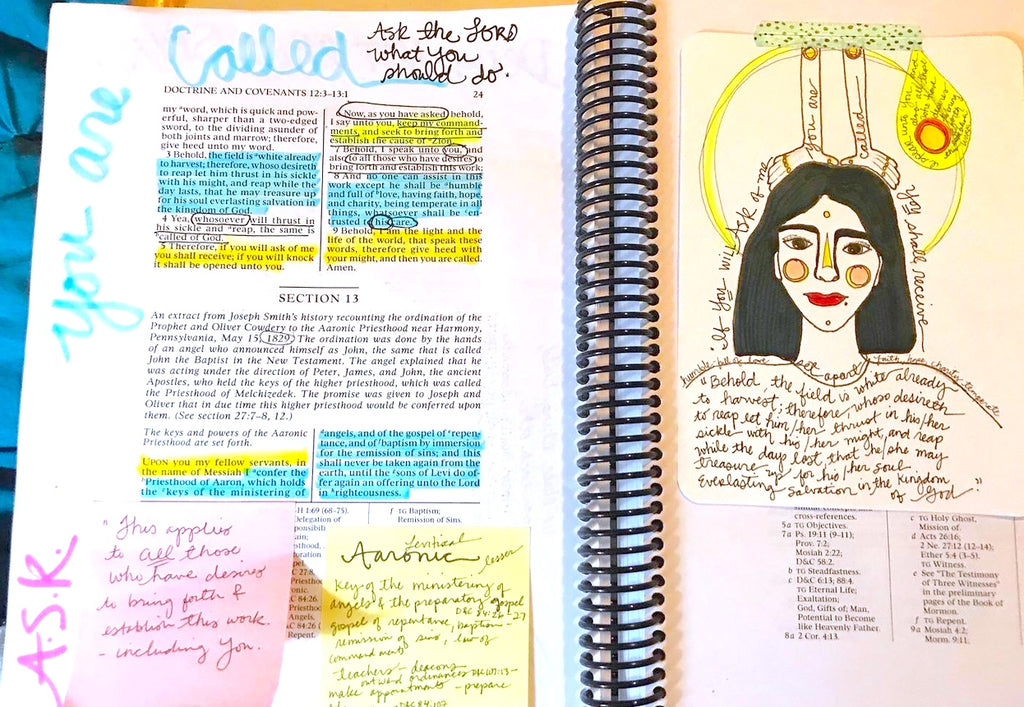 you are
Called
Ask the LORD
what you
should do.
DOCTRINE AND COVENANTS 12:3–13:1
24
my ᵃword, which is quick and pow-
erful, sharper than a two-edged
sword, to the dividing asunder of
both joints and marrow; therefore,
give heed unto my word.
3 Behold, the field is ᵃwhite already
to harvest; therefore, whoso desireth
to reap let him thrust in his sickle
with his might, and reap while the
day lasts, that he may treasure up
for his soul everlasting salvation in
the kingdom of God.
4 Yea, whosoever will thrust in
his sickle and ᵃreap, the same is
ᵇcalled of God.
5 Therefore, if you will ask of me
you shall receive; if you will knock
it shall be opened unto you.
Now, as you have asked, behold,
I say unto you, keep my command-
ments, and seek to bring forth and
establish the cause of ᵃZion.
7 Behold, I speak unto you, and
also to all those who have desires to
bring forth and establish this work;
8 And no one can assist in this
work except he shall be ᵃhumble
and full of ᵇlove, having faith, hope,
and charity, being temperate in all
things, whatsoever shall be ᶜen-
trusted to his care.
9 Behold, I am the light and the
life of the world, that speak these
words, therefore give heed with
your might, and then you are called.
Amen.
SECTION 13
An extract from Joseph Smith's history recounting the ordination of the
Prophet and Oliver Cowdery to the Aaronic Priesthood near Harmony,
Pennsylvania, May 15, 1829. The ordination was done by the hands
of an angel who announced himself as John, the same that is called
John the Baptist in the New Testament. The angel explained that he
was acting under the direction of Peter, James, and John, the ancient
Apostles, who held the keys of the higher priesthood, which was called
the Priesthood of Melchizedek. The promise was given to Joseph and
Oliver that in due time this higher priesthood would be conferred upon
them. (See section 27:7–8, 12.)
The keys and powers of the Aaronic
Priesthood are set forth.
UPON you my fellow servants, in
the name of Messiah I ᵃconfer the
ᵇPriesthood of Aaron, which holds
the ᶜkeys of the ministering of
ᵈangels, and of the gospel of ᵉrepen-
tance, and of ᶠbaptism by immersion
for the remission of sins; and this
shall never be taken again from the
earth, until the ᵍsons of Levi do of-
fer again an offering unto the Lord
in ʰrighteousness.
A.S.K.
"This applies
to all those
who have desires
to bring forth &
establish this work.
- including you.
-H 1:69 (68–75).
Delegation of
f TG Baptism;
Remission of Sins.
Levitical
Aaronic
lesser
Key of the ministering of
angels & the preparatory gospel
D&C 84:26-27
gospel of repentance, baptism-
remission of sins, law of
commandments
teachers - deacons
outward ordinances D&C 107:13-
make appointments - prepare
D&C 84:107
you are
called
Ask of me
if you will
you shall receive
humble - full of love
set apart
faith, hope, charity, temperate
"Behold, the field is white already
to harvest; therefore, whoso desireth
to reap let him/her thrust in his/her
sickle with his/her might, and reap
while the day last, that he/she may
treasure up for his/her soul
Everlasting Salvation in the Kingdom
of God."
cross-references.
5a TG Objectives.
7a Ps. 19:11 (9–11);
Prov. 7:2;
Mosiah 2:22;
D&C 58:2.
b TG Steadfastness.
c D&C 6:13; 88:4.
TG Eternal Life;
Exaltation;
God, Gifts of; Man,
Potential to Become
like Heavenly Father.
8a 2 Cor. 4:13.
c TG Holy Ghost,
Mission of.
d Acts 26:16;
2 Ne. 27:12 (12–14);
Ether 5:4 (3–5).
TG Witness.
e See "The Testimony
of Three Witnesses"
in the preliminary
pages of the Book of
Mormon.
f TG Repent.
9a Mosiah 4:2;
Morm. 9:11;